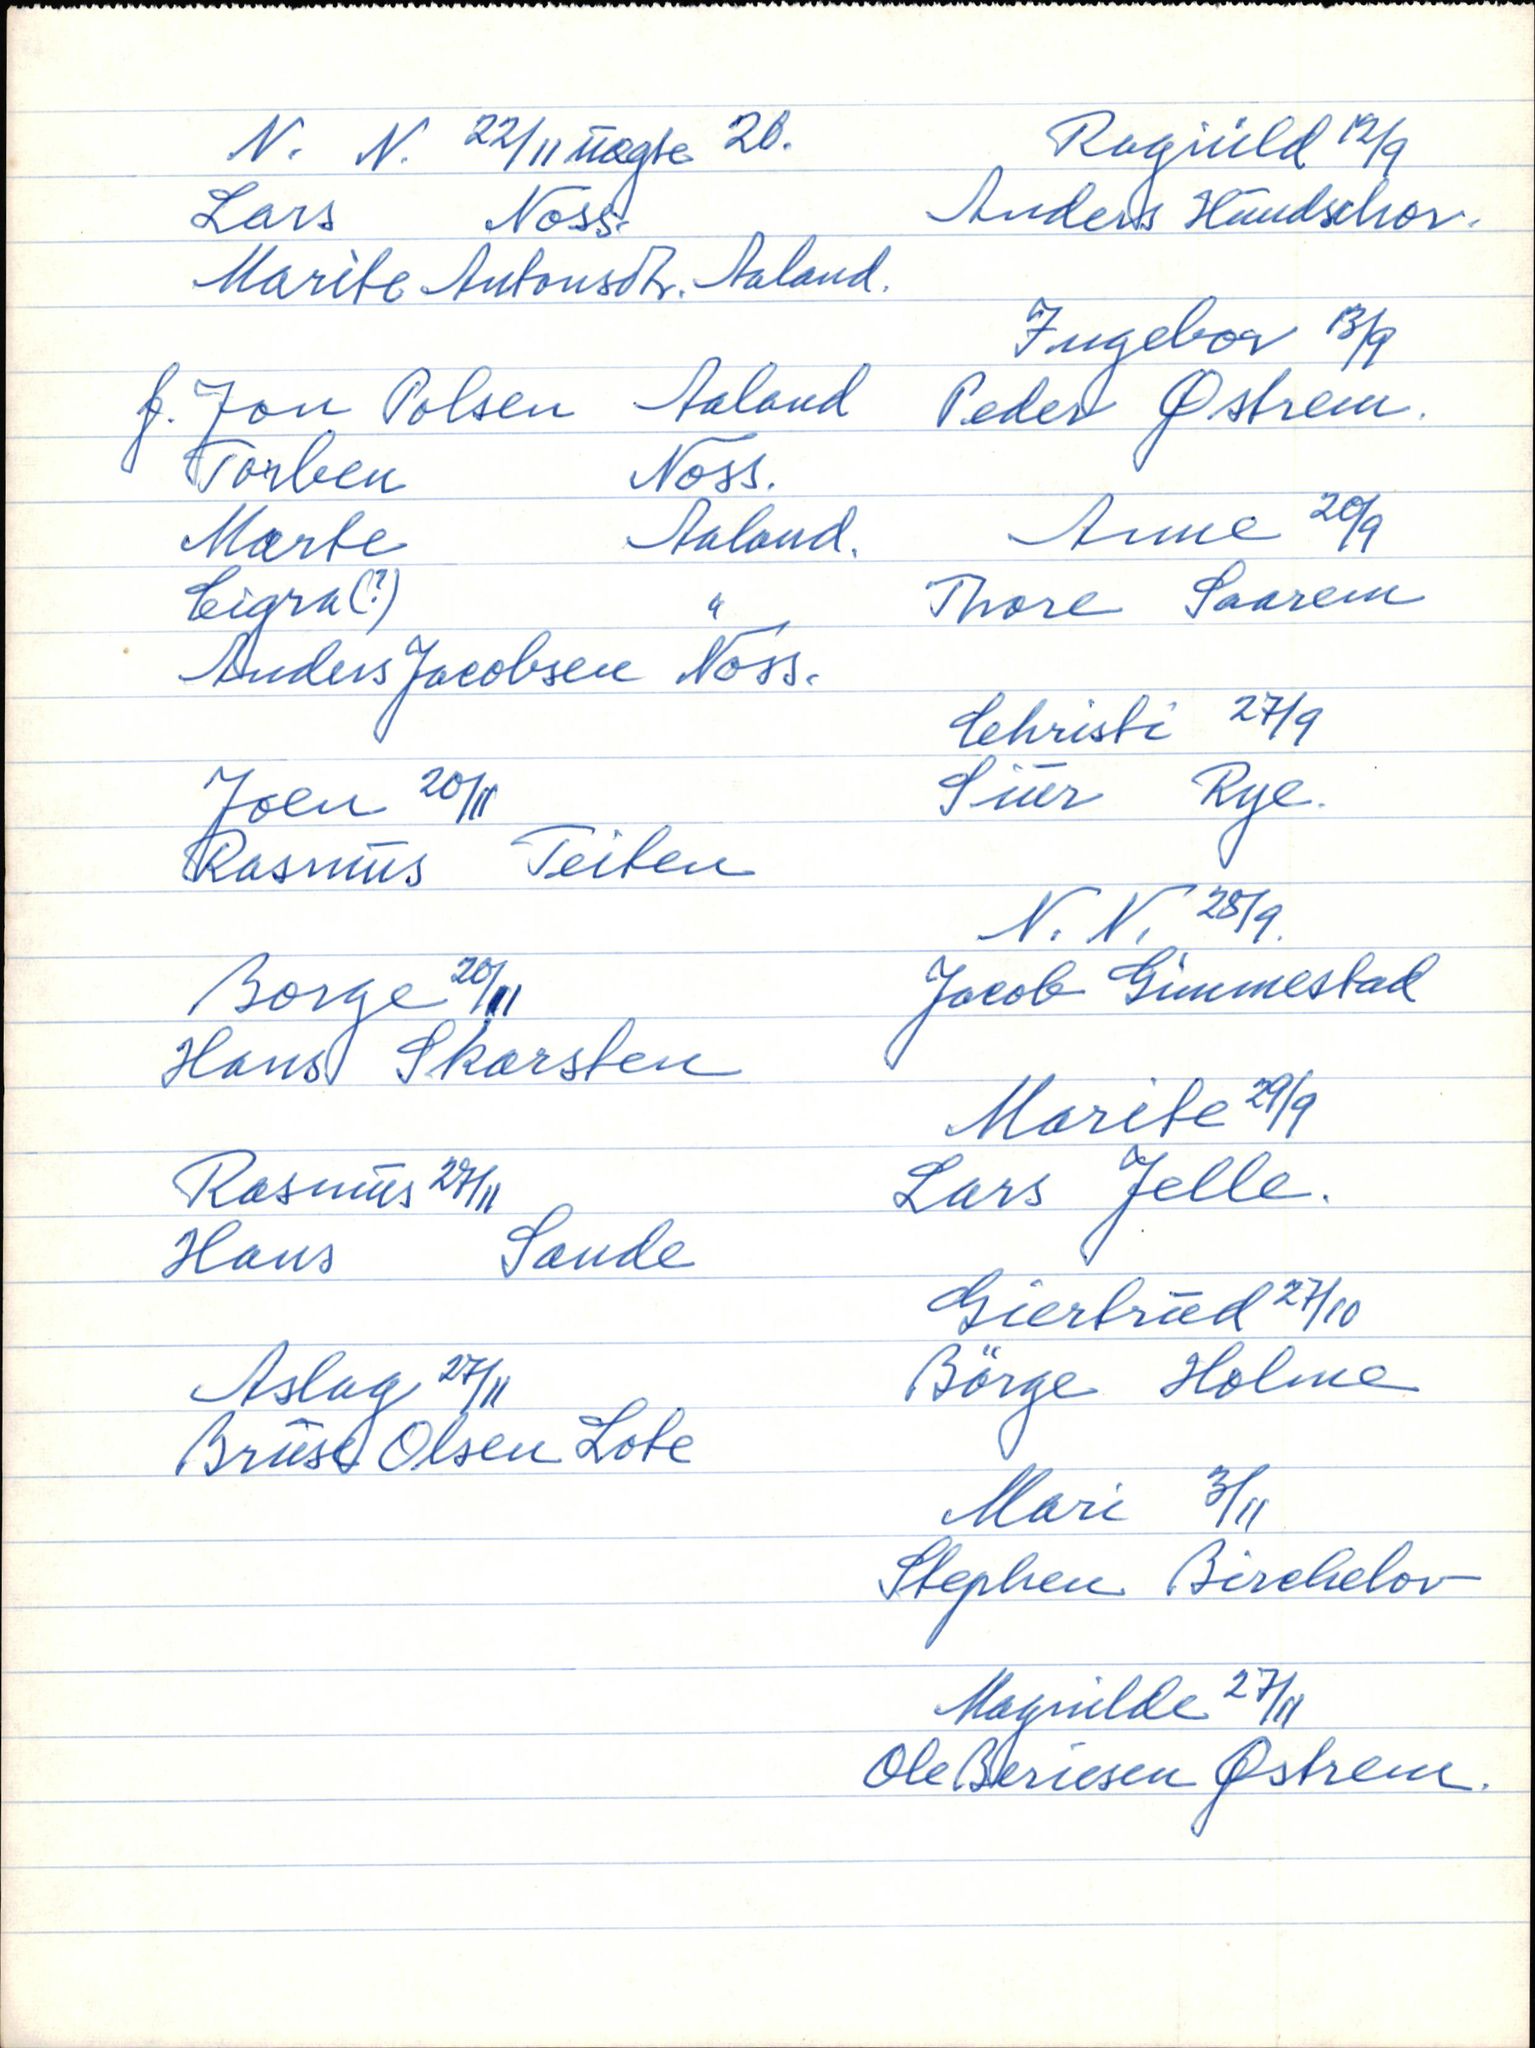 N. N. 22/11 uægte 2b.
Lars Noss.
Marite Antonsdtr. Aaland.
f. Jon Polsen Aaland
Torben Noss.
Marte Aaland.
Cigra(?) "
Anders Jacobsen Noss.
Joen 20/11
Rasmus Teiten
Borge 20/11
Hans Skarsten
Rasmus 27/11
Hans Sande
Aslag 27/11
Bruse Olsen Lote
Ragnild 12/9
Anders Hundschor.
Ingebor 13/9
Peder Østrem.
Anne 20/9
Thore Saarem
Christi 27/9
Siur Rye.
N. N. 28/9.
Jacob Gimmestad
Marite 29/9
Lars Jelle.
Giertrud 27/10
Börge Holme
Mari 3/11
Stephen Birchelov
Magnilde 27/11
Ole Beriesen Østrem.